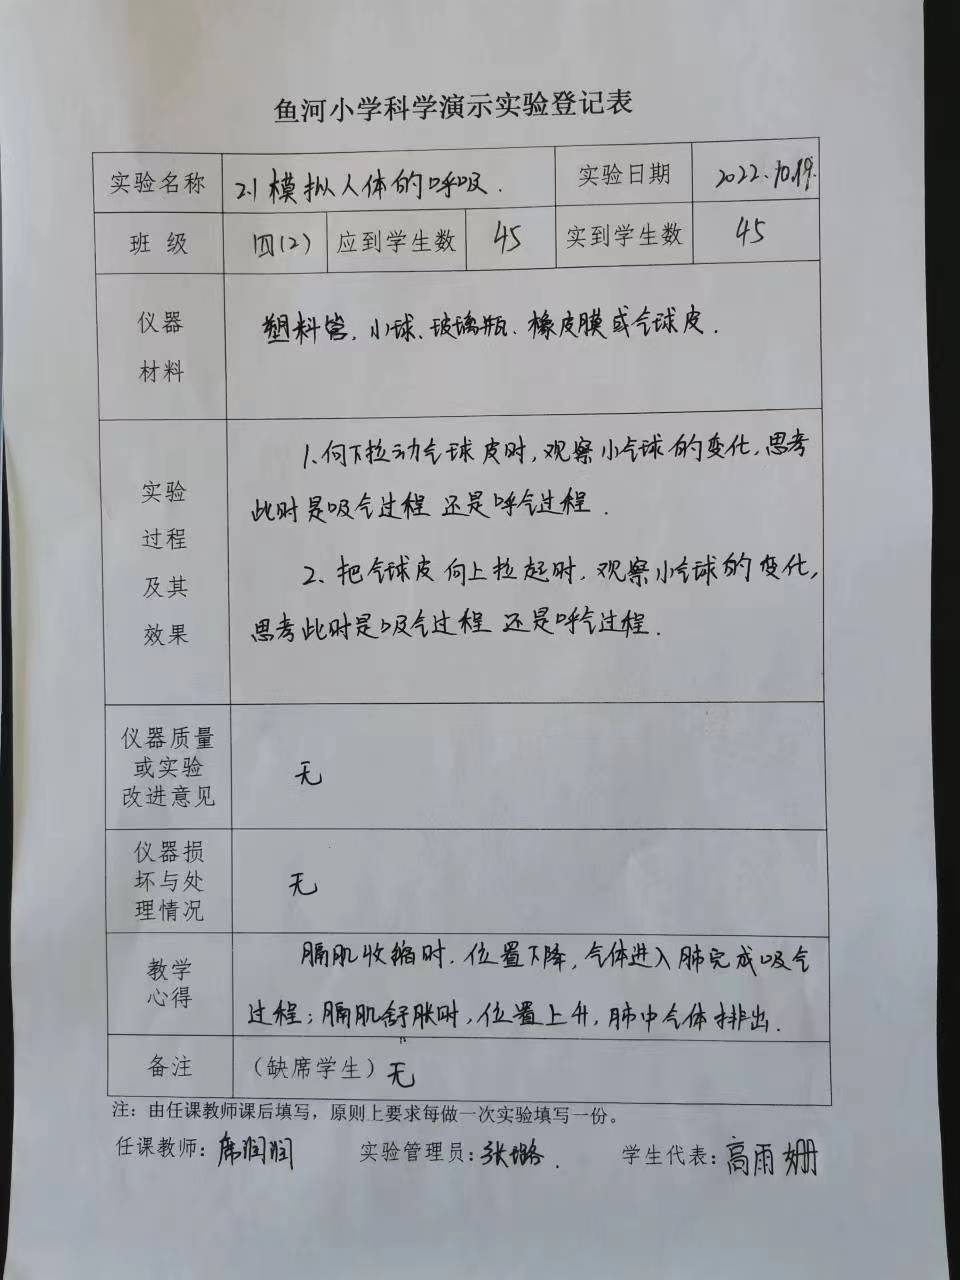 鱼河小学科学演示实验登记表
实验名称 2.1 模拟人体的呼吸. 实验日期 2022.10.19.
班 级 四(2) 应到学生数 45 实到学生数 45
仪器
材料
塑料管,小球、玻璃瓶、橡皮膜或气球皮.
实验
过程
及其
效果
1.向下拉动气球皮时,观察小气球的变化,思考
此时是吸气过程还是呼气过程.
2、把气球皮向上拉起时,观察小气球的变化,
思考此时是吸气过程还是呼气过程.
仪器质量
或实验
改进意见
无
仪器损
坏与处
理情况
无
教学
心得
膈肌收缩时.位置下降,气体进入肺完成吸气
过程;膈肌舒胀时,位置上升,肺中气体排出.
备注 (缺席学生)无
注:由任课教师课后填写,原则上要求每做一次实验填写一份。
任课教师:席润润 实验管理员:张璐. 学生代表:高雨姗